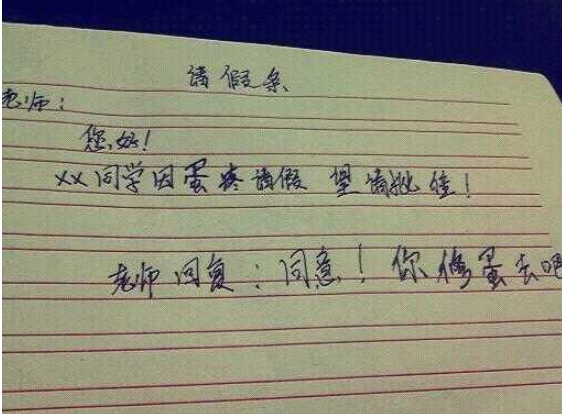 请假条
老师：
您好！
XX同学因蛋疼请假 望请批准！
老师回复：同意！你修蛋去吧